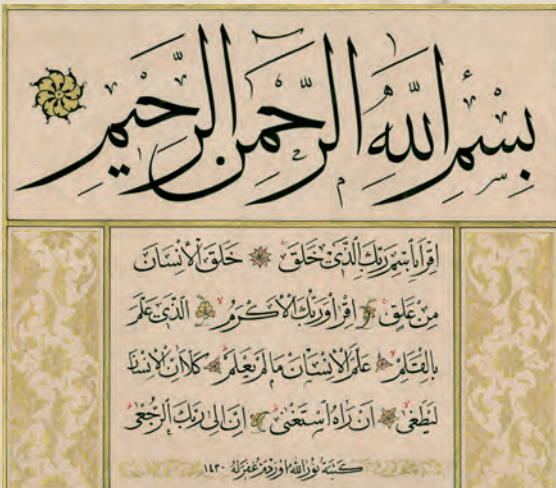 بِسْمِ اللّٰهِ الرَّحْمٰنِ الرَّحِيمِ
اِقْرَأْ بِاسْمِ رَبِّكَ الَّذٖى خَلَقَ خَلَقَ الْاِنْسَانَ
مِنْ عَلَقٍ اِقْرَأْ وَرَبُّكَ الْاَكْرَمُ اَلَّذٖى عَلَّمَ
بِالْقَلَمِ عَلَّمَ الْاِنْسَانَ مَا لَمْ يَعْلَمْ كَلَّا اِنَّ الْاِنْسَانَ
لَيَطْغٰى اَنْ رَاٰهُ اسْتَغْنٰى اِنَّ اِلٰى رَبِّكَ الرُّجْعٰى
كتبه نور الله اوزدم غفر له ١٤٣٠